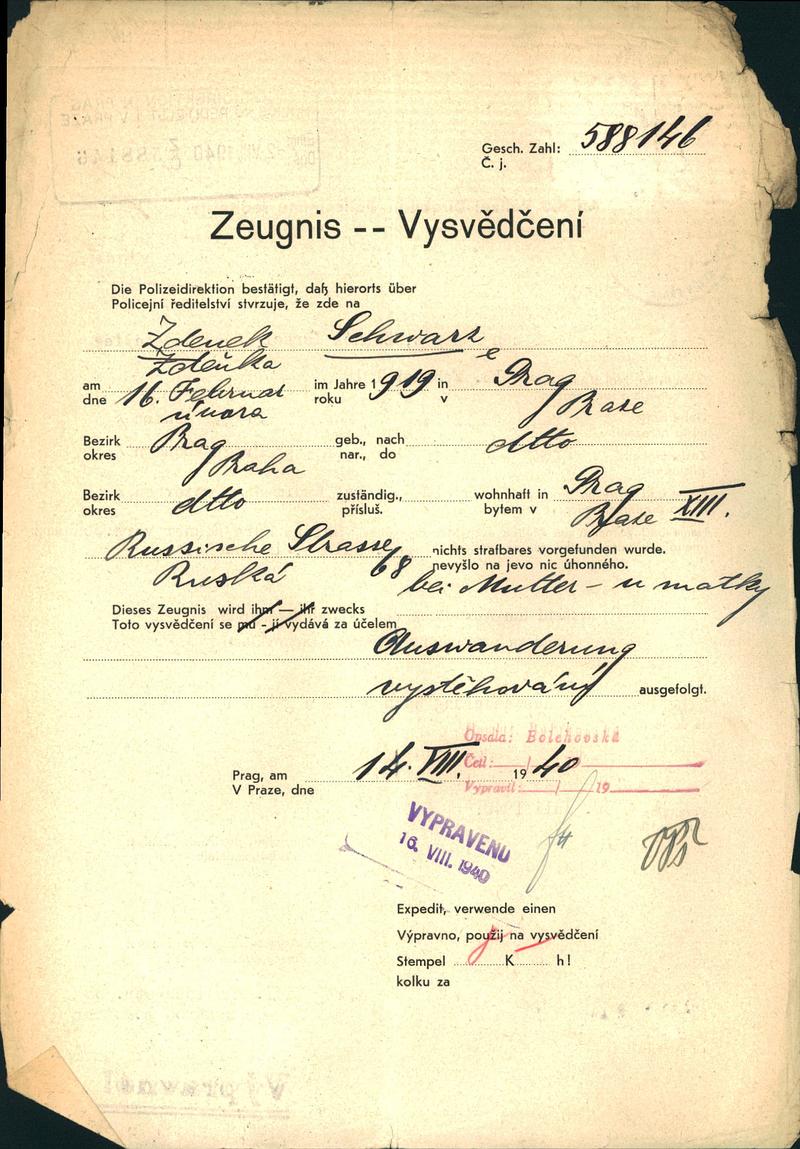 Gesch. Zahl: 588146
Č. j.
Zeugnis -- Vysvědčení
Die Polizeidirektion bestätigt, daß hierorts über
Policejní ředitelství stvrzuje, že zde na
Zdenek Schwarz
Zdeňka e
am 16. Februar im Jahre 1919 in Prag
dne února roku v Praze
Bezirk Prag geb., nach dtto
okres Praha nar., do
Bezirk dtto zuständig., wohnhaft in Prag
okres přísluš. bytem v Praze XIII.
Russische Strasse 68 nichts strafbares vorgefunden wurde.
Ruská nevyšlo na jevo nic úhonného.
bei Mutter - u matky
Dieses Zeugnis wird ihm — ihr zwecks
Toto vysvědčení se mu - jí vydává za účelem
Auswanderung
vystěhování ausgefolgt.
Opsala: Bolehovská
Četl:
Prag, am 14. VIII. 1940
V Praze, dne
Vypravil: / / 19
VYPRAVENO
16. VIII. 1940
Expedit, verwende einen
Výpravno, použij na vysvědčení
Stempel K h!
kolku za